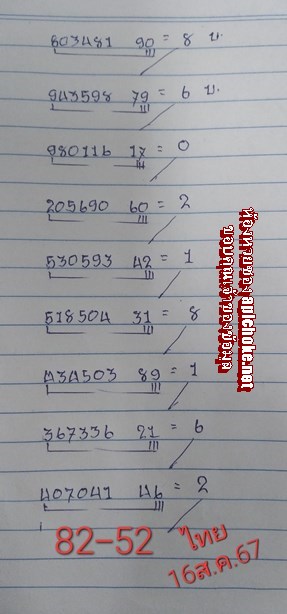 803481 90 = 8 บ.
943598 79 = 6 บ.
980116 17 = 0
205690 60 = 2
530593 42 = 1
518504 31 = 8
434503 89 = 1
367336 21 = 6
407041 46 = 2
82-52 ไทย
16ส.ค.67
ห้องหวยซองapichoke.net
ขอบคุณเจ้าของข้อมูล